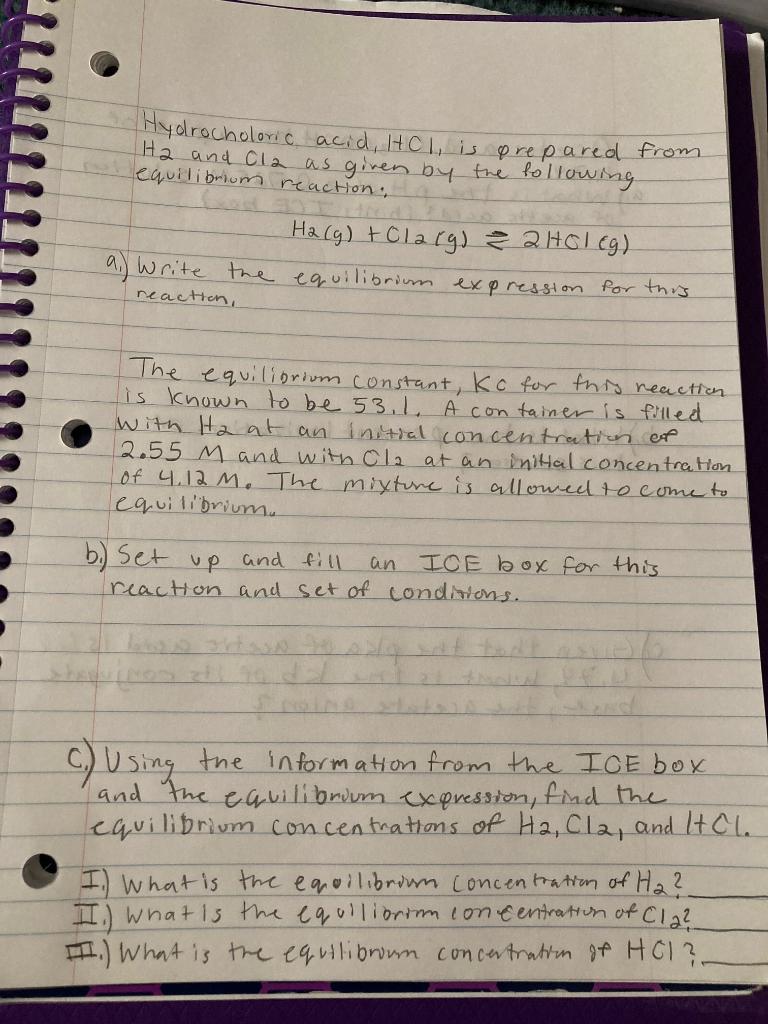 Hydrocholoric acid, HCl, is prepared from
H2 and Cl2 as given by the following
equilibrium reaction:
H2(g) + Cl2(g) ⇌ 2HCl(g)
a.) Write the equilibrium expression for this
reaction.
The equilibrium constant, Kc for this reaction
is known to be 53.1. A container is filled
with H2 at an initial concentration of
2.55 M and with Cl2 at an initial concentration
of 4.12 M. The mixture is allowed to come to
equilibrium.
b.) Set up and fill an ICE box for this
reaction and set of conditions.
c.) Using the information from the ICE box
and the equilibrium expression, find the
equilibrium concentrations of H2, Cl2, and HCl.
I.) What is the equilibrium concentration of H2?
II.) What is the equilibrium concentration of Cl2?
III.) What is the equilibrium concentration of HCl?